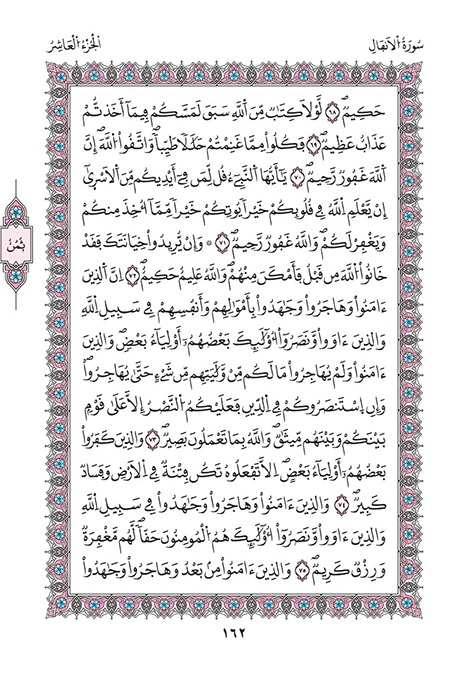 سُورَةُ اُ۬لَانفَالِ
اَ۬لْجُزْءُ اُ۬لْعَاشِرُ
حَكِيمٌۖ ٦٨ لَّوْلَا كِتَٰبٞ مِّنَ اَ۬للَّهِ سَبَقَ لَمَسَّكُمْ فِيمَآ أَخَذتُّمْ
عَذَابٌ عَظِيمٞۖ ٦٩ فَكُلُواْ مِمَّا غَنِمْتُمْ حَلَٰلاٗ طَيِّباٗۖ وَاتَّقُواْ اُ۬للَّهَۖ إِنَّ
اَ۬للَّهَ غَفُورٞ رَّحِيمٞۖ ٧٠ يَٰٓأَيُّهَا اَ۬لنَّبِيٓءُ قُل لِّمَن فِےٓ أَيْدِيكُم مِّنَ اَ۬لَاسْرَىٰٓ
إِنْ يَّعْلَمِ اِ۬للَّهُ فِے قُلُوبِكُمْ خَيْراٗ يُوتِكُمْ خَيْراٗ مِّمَّآ أُخِذَ مِنكُمْ
وَيَغْفِرْ لَكُمْۖ وَاللَّهُ غَفُورٞ رَّحِيمٞۖ ٧١ ۞ وَإِنْ يُّرِيدُواْ خِيَانَتَكَ فَقَدْ
ثُمُنُ
خَانُواْ اُ۬للَّهَ مِن قَبْلُ فَأَمْكَنَ مِنْهُمْۖ وَاللَّهُ عَلِيمٌ حَكِيمٌۖ ٧٢ اِنَّ اَ۬لذِينَ
ءَامَنُواْ وَهَاجَرُواْ وَجَٰهَدُواْ بِأَمْوَٰلِهِمْ وَأَنفُسِهِمْ فِے سَبِيلِ اِ۬للَّهِ
وَالذِينَ ءَاوَواْ وَّنَصَرُوٓاْ أُوْلَٰٓئِكَ بَعْضُهُمُۥٓ أَوْلِيَآءُ بَعْضٖۖ وَالذِينَ
ءَامَنُواْ وَلَمْ يُهَاجِرُواْ مَا لَكُم مِّنْ وَّلَٰيَتِهِم مِّن شَےْءٍ حَتَّىٰ يُهَاجِرُواْۖ
وَإِنِ اِ۪سْتَنصَرُوكُمْ فِے اِ۬لدِّينِ فَعَلَيْكُمُ اُ۬لنَّصْرُ إِلَّا عَلَىٰ قَوْمِۢ
بَيْنَكُمْ وَبَيْنَهُم مِّيثَٰقٞۖ وَاللَّهُ بِمَا تَعْمَلُونَ بَصِيرٞۖ ٧٣ وَالذِينَ كَفَرُواْ
بَعْضُهُمُۥٓ أَوْلِيَآءُ بَعْضٍۖ اِلَّا تَفْعَلُوهُ تَكُن فِتْنَةٞ فِے اِ۬لَارْضِ وَفَسَادٞ
كَبِيرٞۖ ٧٤ وَالذِينَ ءَامَنُواْ وَهَاجَرُواْ وَجَٰهَدُواْ فِے سَبِيلِ اِ۬للَّهِ
وَالذِينَ ءَاوَواْ وَّنَصَرُوٓاْ أُوْلَٰٓئِكَ هُمُ اُ۬لْمُومِنُونَ حَقّاٗۖ لَّهُم مَّغْفِرَةٞ
وَرِزْقٞ كَرِيمٞۖ ٧٥ وَالذِينَ ءَامَنُواْ مِنۢ بَعْدُ وَهَاجَرُواْ وَجَٰهَدُواْ
١٦٢